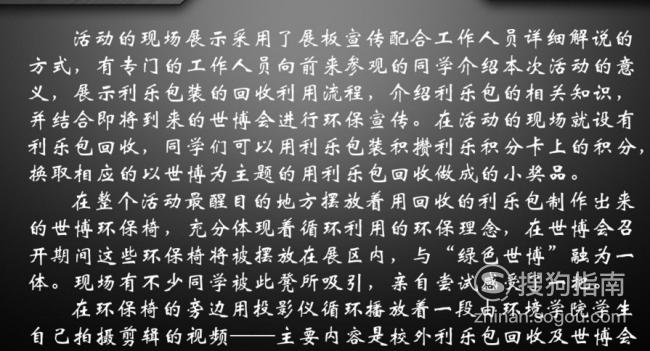 活动的现场展示采用了展板宣传配合工作人员详细解说的
方式，有专门的工作人员向前来参观的同学介绍本次活动的意
义，展示利乐包装的回收利用流程，介绍利乐包的相关知识，
并结合即将到来的世博会进行环保宣传。在活动的现场就设有
利乐包回收，同学们可以用利乐包装积攒利乐积分卡上的积分，
换取相应的以世博为主题的用利乐包回收做成的小奖品。
在整个活动最醒目的地方摆放着用回收的利乐包制作出来
的世博环保椅，充分体现着循环利用的环保理念，在世博会召
开期间这些环保椅将被摆放在展区内，与“绿色世博”融为一
体。现场有不少同学被此凳所吸引，亲自尝试感受了一把。
在环保椅的旁边用投影仪循环播放着一段由环境学院学生
自己拍摄剪辑的视频——主要内容是校外利乐包回收及世博会
搜狗指南
zhinan.sogou.com